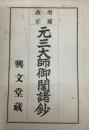 増補
改正
元三大師御鬮諸鈔
興文堂蔵